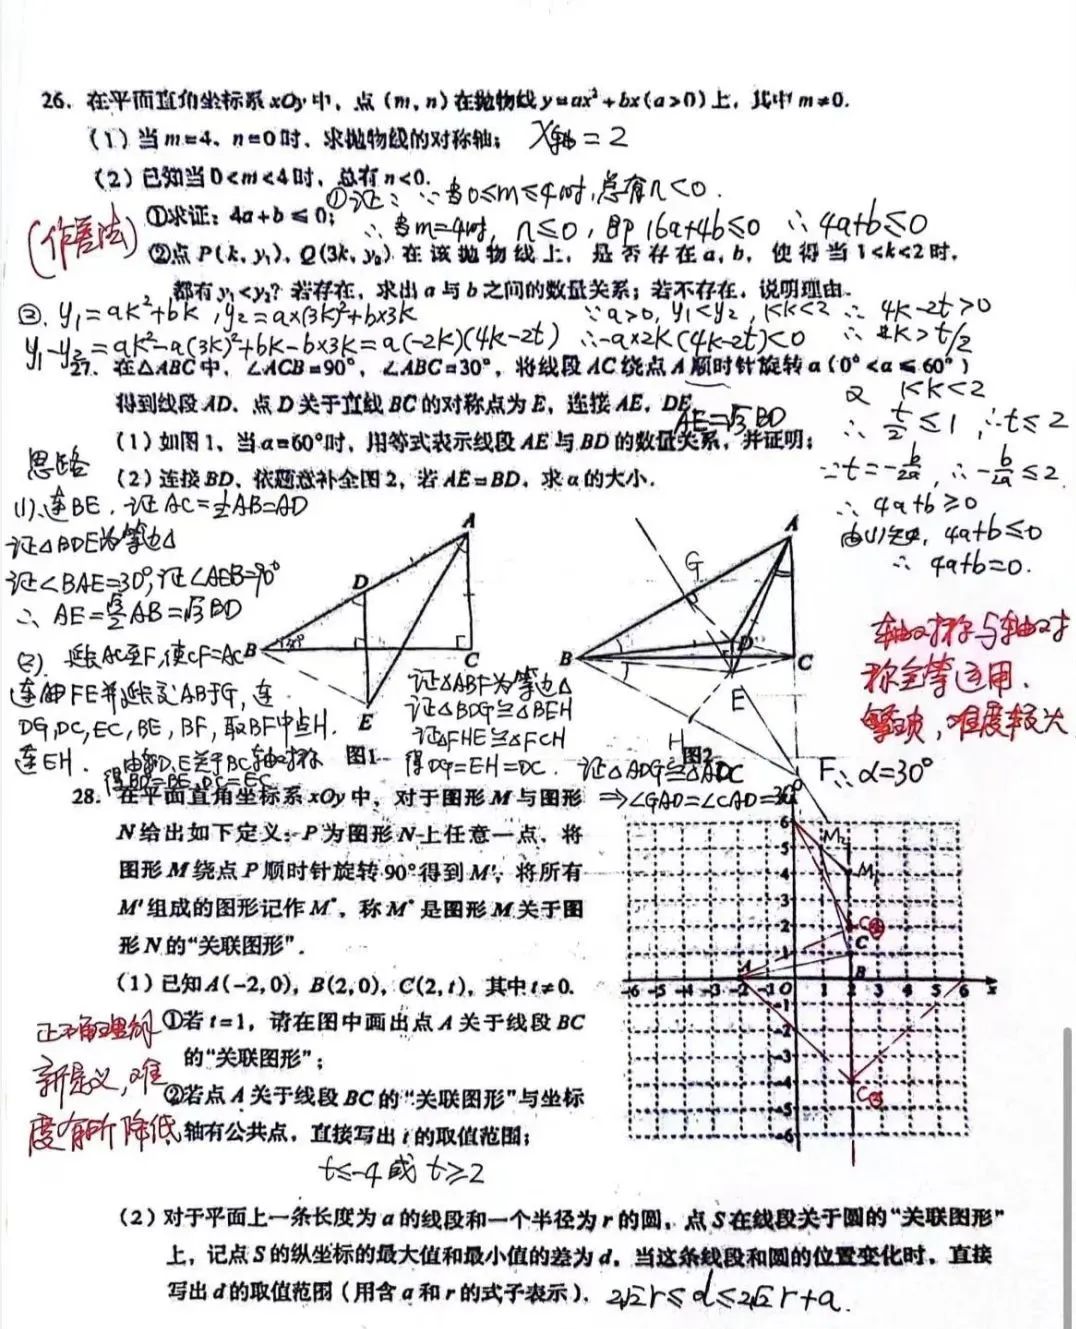 26. 在平面直角坐标系xOy中，点(m,n)在抛物线y=ax²+bx(a>0)上，其中m≠0.
(1)当m=4，n=0时，求抛物线的对称轴； X轴=2
(2)已知当0<m<4时，总有n<0.
①证：∵当0≤m≤4时,总有n<0.
①求证：4a+b≤0；
∴当m=4时, n≤0, 即16a+4b≤0 ∴4a+b≤0
②点P(k,y₁)，Q(3k,y₂)在该抛物线上，是否存在a,b，使得当1<k<2时，
都有y₁<y₂？若存在，求出a与b之间的数量关系；若不存在，说明理由.
②. y₁=ak²+bk, y₂=a×(3k)²+b×3k ∵a>0, y₁<y₂, 1<k<2 ∴4k-2t>0
y₁-y₂=ak²-a(3k)²+bk-b×3k=a(-2k)(4k-2t) ∴-a×2k(4k-2t)<0 ∴k>t/2
27. 在△ABC中，∠ACB=90°，∠ABC=30°，将线段AC绕点A顺时针旋转α(0°<α≤60°)
得到线段AD. 点D关于直线BC的对称点为E，连接AE，DE.
AE=√3BD
(1)如图1，当α=60°时，用等式表示线段AE与BD的数量关系，并证明；
(2)连接BD，依题意补全图2，若AE=BD，求α的大小.
1<k<2
∴t/2≤1, ∴t≤2
∵t=-b/2a, ∴-b/2a≤2
∴4a+b≥0
由(1)知, 4a+b≤0
∴4a+b=0.
思路
(1)连BE, 证AC=½AB=AD
证△BDE为等边△
证∠BAE=30°,证∠AEB=90°
∴AE=√3/2AB=√3BD
(2) 延长AC至F,使CF=AC
连FE并延长交AB于G, 连
DG,DC,EC,BE,BF,取BF中点H.
连EH. 由D,E关于BC轴对称
得BD=BE,DC=EC
A
D
B
C
E
图1
证△ABF为等边△
证△BDG≌△BEH
证△FHE≌△FCH
得DG=EH=DC. 证△ADG≌△ADC
⇒∠GAD=∠CAD=30°
∴α=30°
A
G
D
B
C
E
H
F
图2
轴对称与轴对
称全等运用.
难度较大
28. 在平面直角坐标系xOy中，对于图形M与图形
N给出如下定义：P为图形N上任意一点，将
图形M绕点P顺时针旋转90°得到M′，将所有
M′组成的图形记作M*，称M*是图形M关于图
形N的“关联图形”.
(1)已知A(-2,0)，B(2,0)，C(2,t)，其中t≠0.
①若t=1，请在图中画出点A关于线段BC
的“关联图形”；
②若点A关于线段BC的“关联图形”与坐标
轴有公共点，直接写出t的取值范围；
t≤-4或t≥2
新定义,难
度有所降低
6
5
4
3
2
1
-6 -5 -4 -3 -2 -1 O 1 2 3 4 5 6 x
-1
-2
-3
-4
-5
-6
A
B
C
M₁
M₂
(2)对于平面上一条长度为a的线段和一个半径为r的圆，点S在线段关于圆的“关联图形”
上，记点S的纵坐标的最大值和最小值的差为d，当这条线段和圆的位置变化时，直接
写出d的取值范围(用含a和r的式子表示). 2√2r≤d≤2√2r+a.